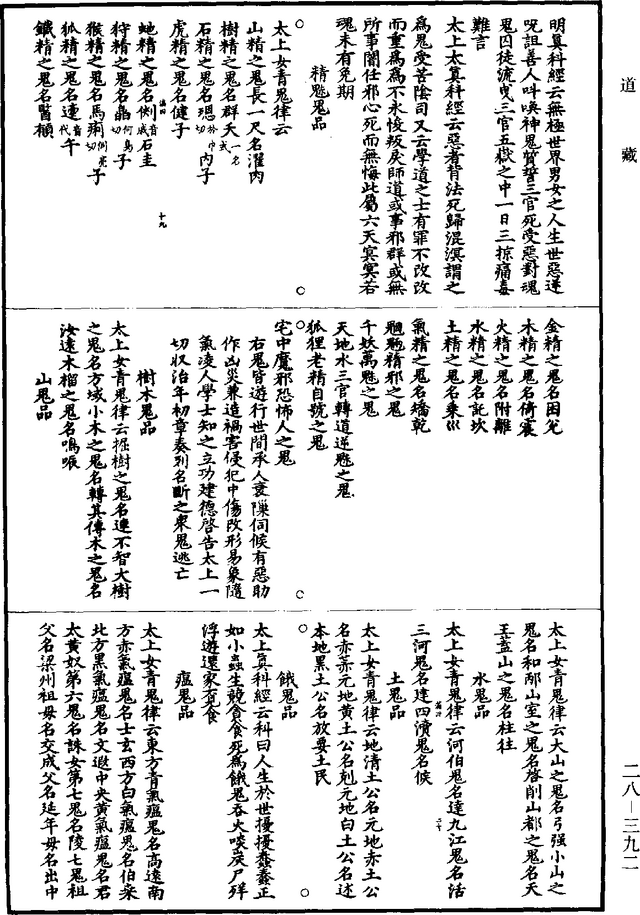 道藏
明真科經云無極世界男女之人生世惡逆
呪詛善人呌喚神鬼質誓三官死受惡對魂
鬼囚徒流曳三官五嶽之中一日三掠痛毒
難言
太上太真科經云惡者背法死歸混溟謂之
爲鬼受苦陰司又云學道之士有罪不改改
而重爲爲不永悛叛戾師道或事邪群或無
所事闇任邪心死而無悔此屬六天冥冥若
魂未有免期
精魅鬼品
太上女青鬼律云
山精之鬼長一尺名濯肉
樹精之鬼名群夭一名式
石精之鬼名璁內子
虎精之鬼名健子
虵精之鬼名側音成石圭
狩精之鬼名晶何鳥切子
猴精之鬼名馬蜊例莧切子
狐精之鬼名連音代午
鐵精之鬼名瞖𩕄
十九
金精之鬼名困兊
木精之鬼名倚震
火精之鬼名附離
水精之鬼名託坎
土精之鬼名乘巛
氣精之鬼名矯乾
魍魎精邪之鬼
千妖萬魅之鬼
天地水三官轉道逆魅之鬼
狐狸老精自號之鬼
宅中魔邪恐怖人之鬼
右鬼皆遊行世間承人衰隙伺候有惡助
作凶災兼造禍害侵犯中傷改形易象隨
氣凌人學士知之立功建德啓告太上一
切收治年初章奏列名斷之衆鬼逃亡
樹木鬼品
太上女青鬼律云掘樹之鬼名連不智大樹
之鬼名方域小木之鬼名轉其傳木之鬼名
汝遠木榴之鬼名鳴㖇
山鬼品
太上女青鬼律云大山之鬼名弓强小山之
鬼名和邴山室之鬼名啓削山都之鬼名天
王蓋山之鬼名柱往
水鬼品
太上女青鬼律云河伯鬼名達九江鬼名活
三河鬼名建四瀆鬼名候
二十
土鬼品
太上女青鬼律云地清土公名元地赤土公
名赤萊元地黄土公名剋元地白土公名述
本地黑土公名放要土民
餓鬼品
太上真科經云科曰人生於世擾擾蠢蠢正
如小蟲生競貪食死爲餓鬼吞火啖炭尸殍
浮遊還家覓食
瘟鬼品
太上女青鬼律云東方青氣瘟鬼名高遠南
方赤氣瘟鬼名士玄西方白氣瘟鬼名伯桒
北方黑氣瘟鬼名文遐中央黄氣瘟鬼名君
太黄奴第六鬼名誅女第七鬼名陵七鬼祖
父名梁州祖母名交成父名延年母名出中
二八—三九二